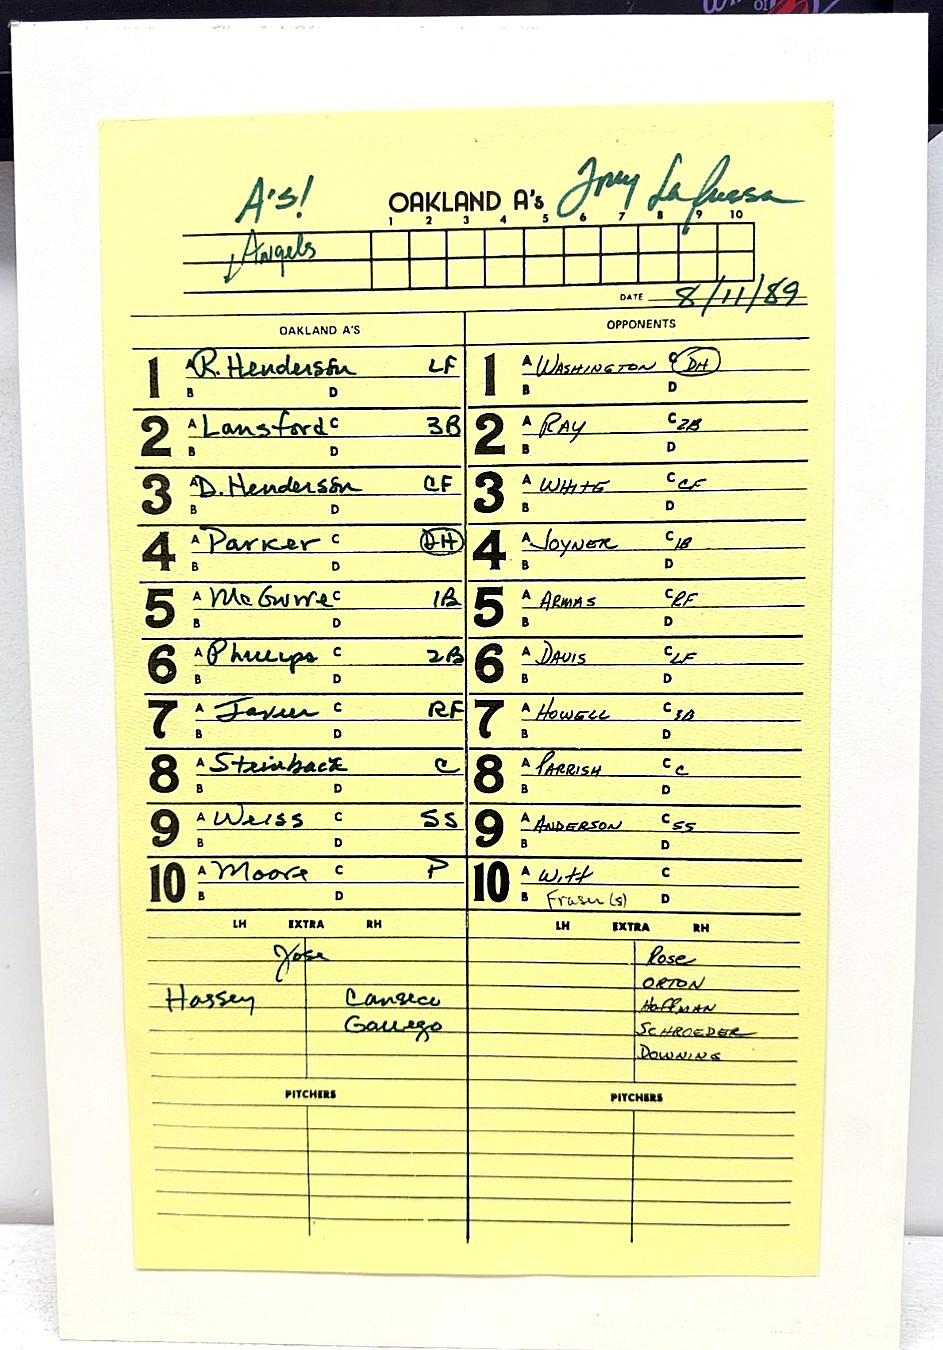 A's! OAKLAND A's Tony La Russa
1 2 3 4 5 6 7 8 9 10
Angels
DATE 8/11/89
OAKLAND A'S OPPONENTS
1 A R. Henderson LF 1 A WASHINGTON C DH
B D B D
2 A Lansford C 3B 2 A RAY C 2B
B D B D
3 A D. Henderson CF 3 A WHITE C CF
B D B D
4 A Parker C DH 4 A JOYNER C 1B
B D B D
5 A McGwire C 1B 5 A ARMAS C RF
B D B D
6 A Phillips C 2B 6 A DAVIS C LF
B D B D
7 A Javier C RF 7 A HOWELL C 3B
B D B D
8 A Steinback C C 8 A PARRISH C C
B D B D
9 A Weiss C SS 9 A ANDERSON C SS
B D B D
10 A Moore C P 10 A WITT C
B D B Fraser (s) D
LH EXTRA RH LH EXTRA RH
Jose Rose
ORTON
Hassey Canseco HOFFMAN
Gallego SCHROEDER
DOWNING
PITCHERS PITCHERS